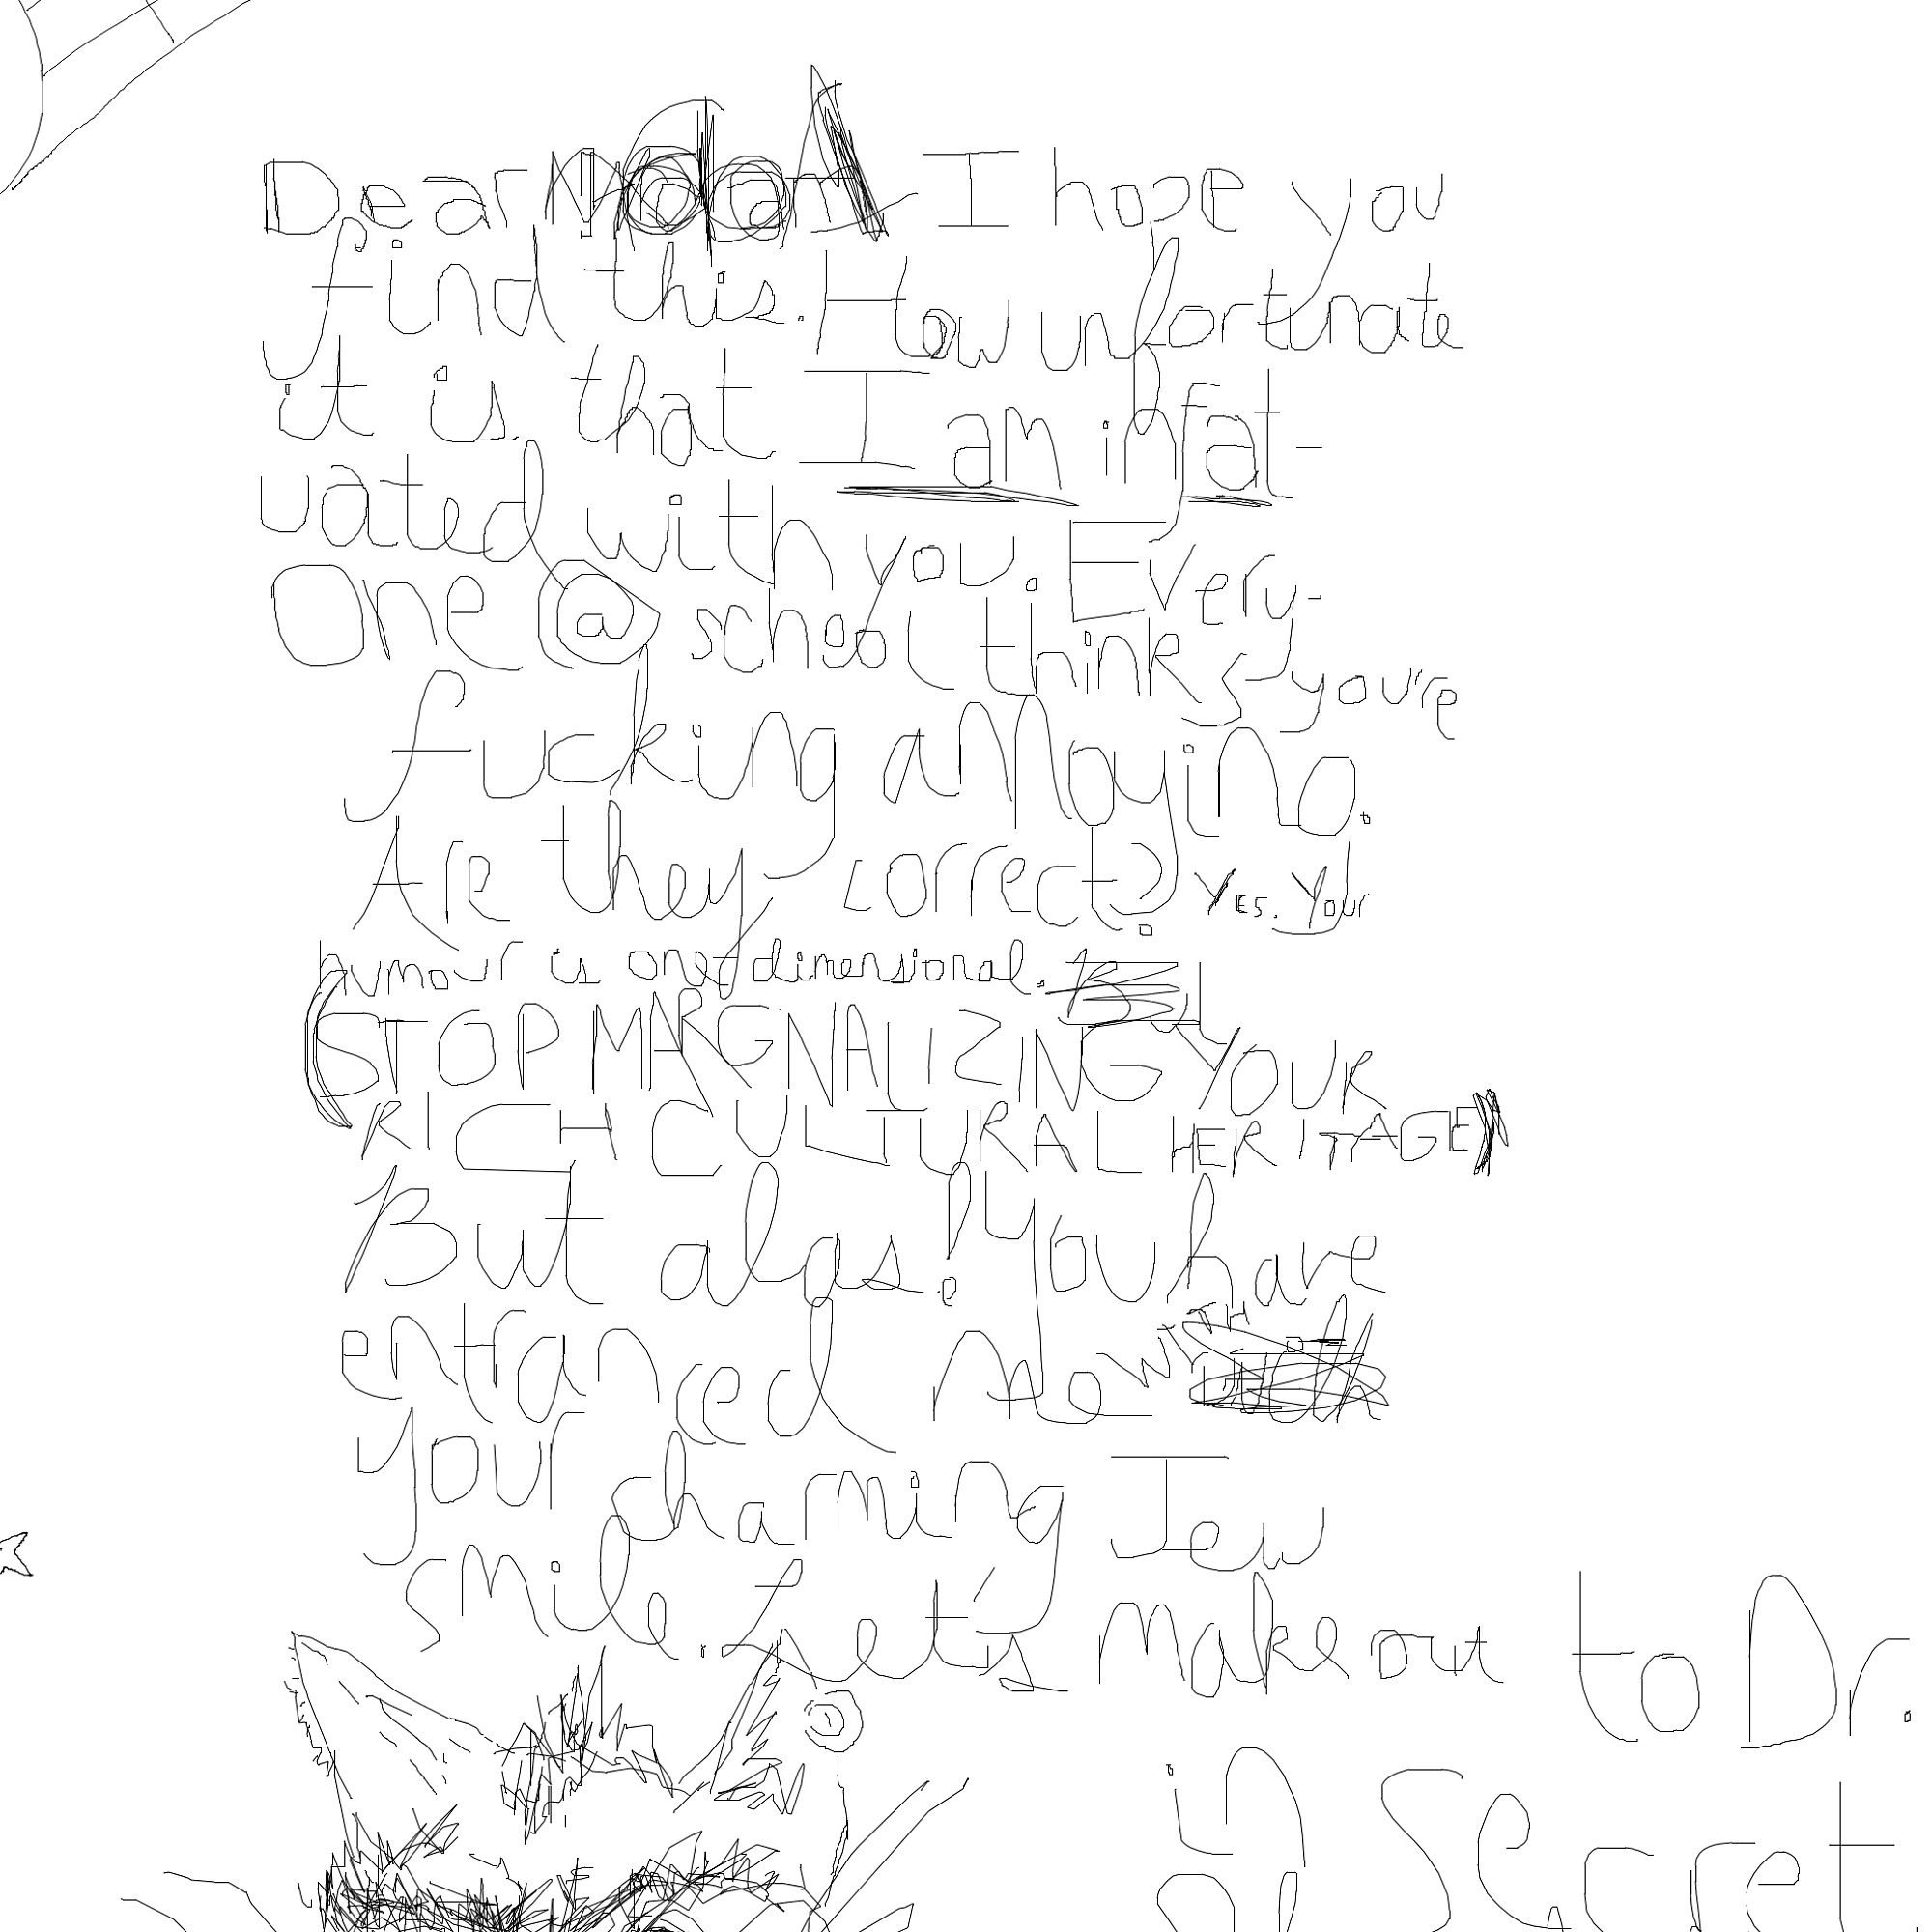 Dear I hope you
find this. How unfortunate
it is that I am infat-
uated with you. Every-
one @ school thinks you're
fucking annoying.
Are they correct? YES. Your
humour is one dimensional. But
(STOP MARGINALIZING YOUR
RICH CULTURAL HERITAGE)
But alas! You have
entranced me WITH
your charming Jew
smile. Let's make out to Dr.
in Secret